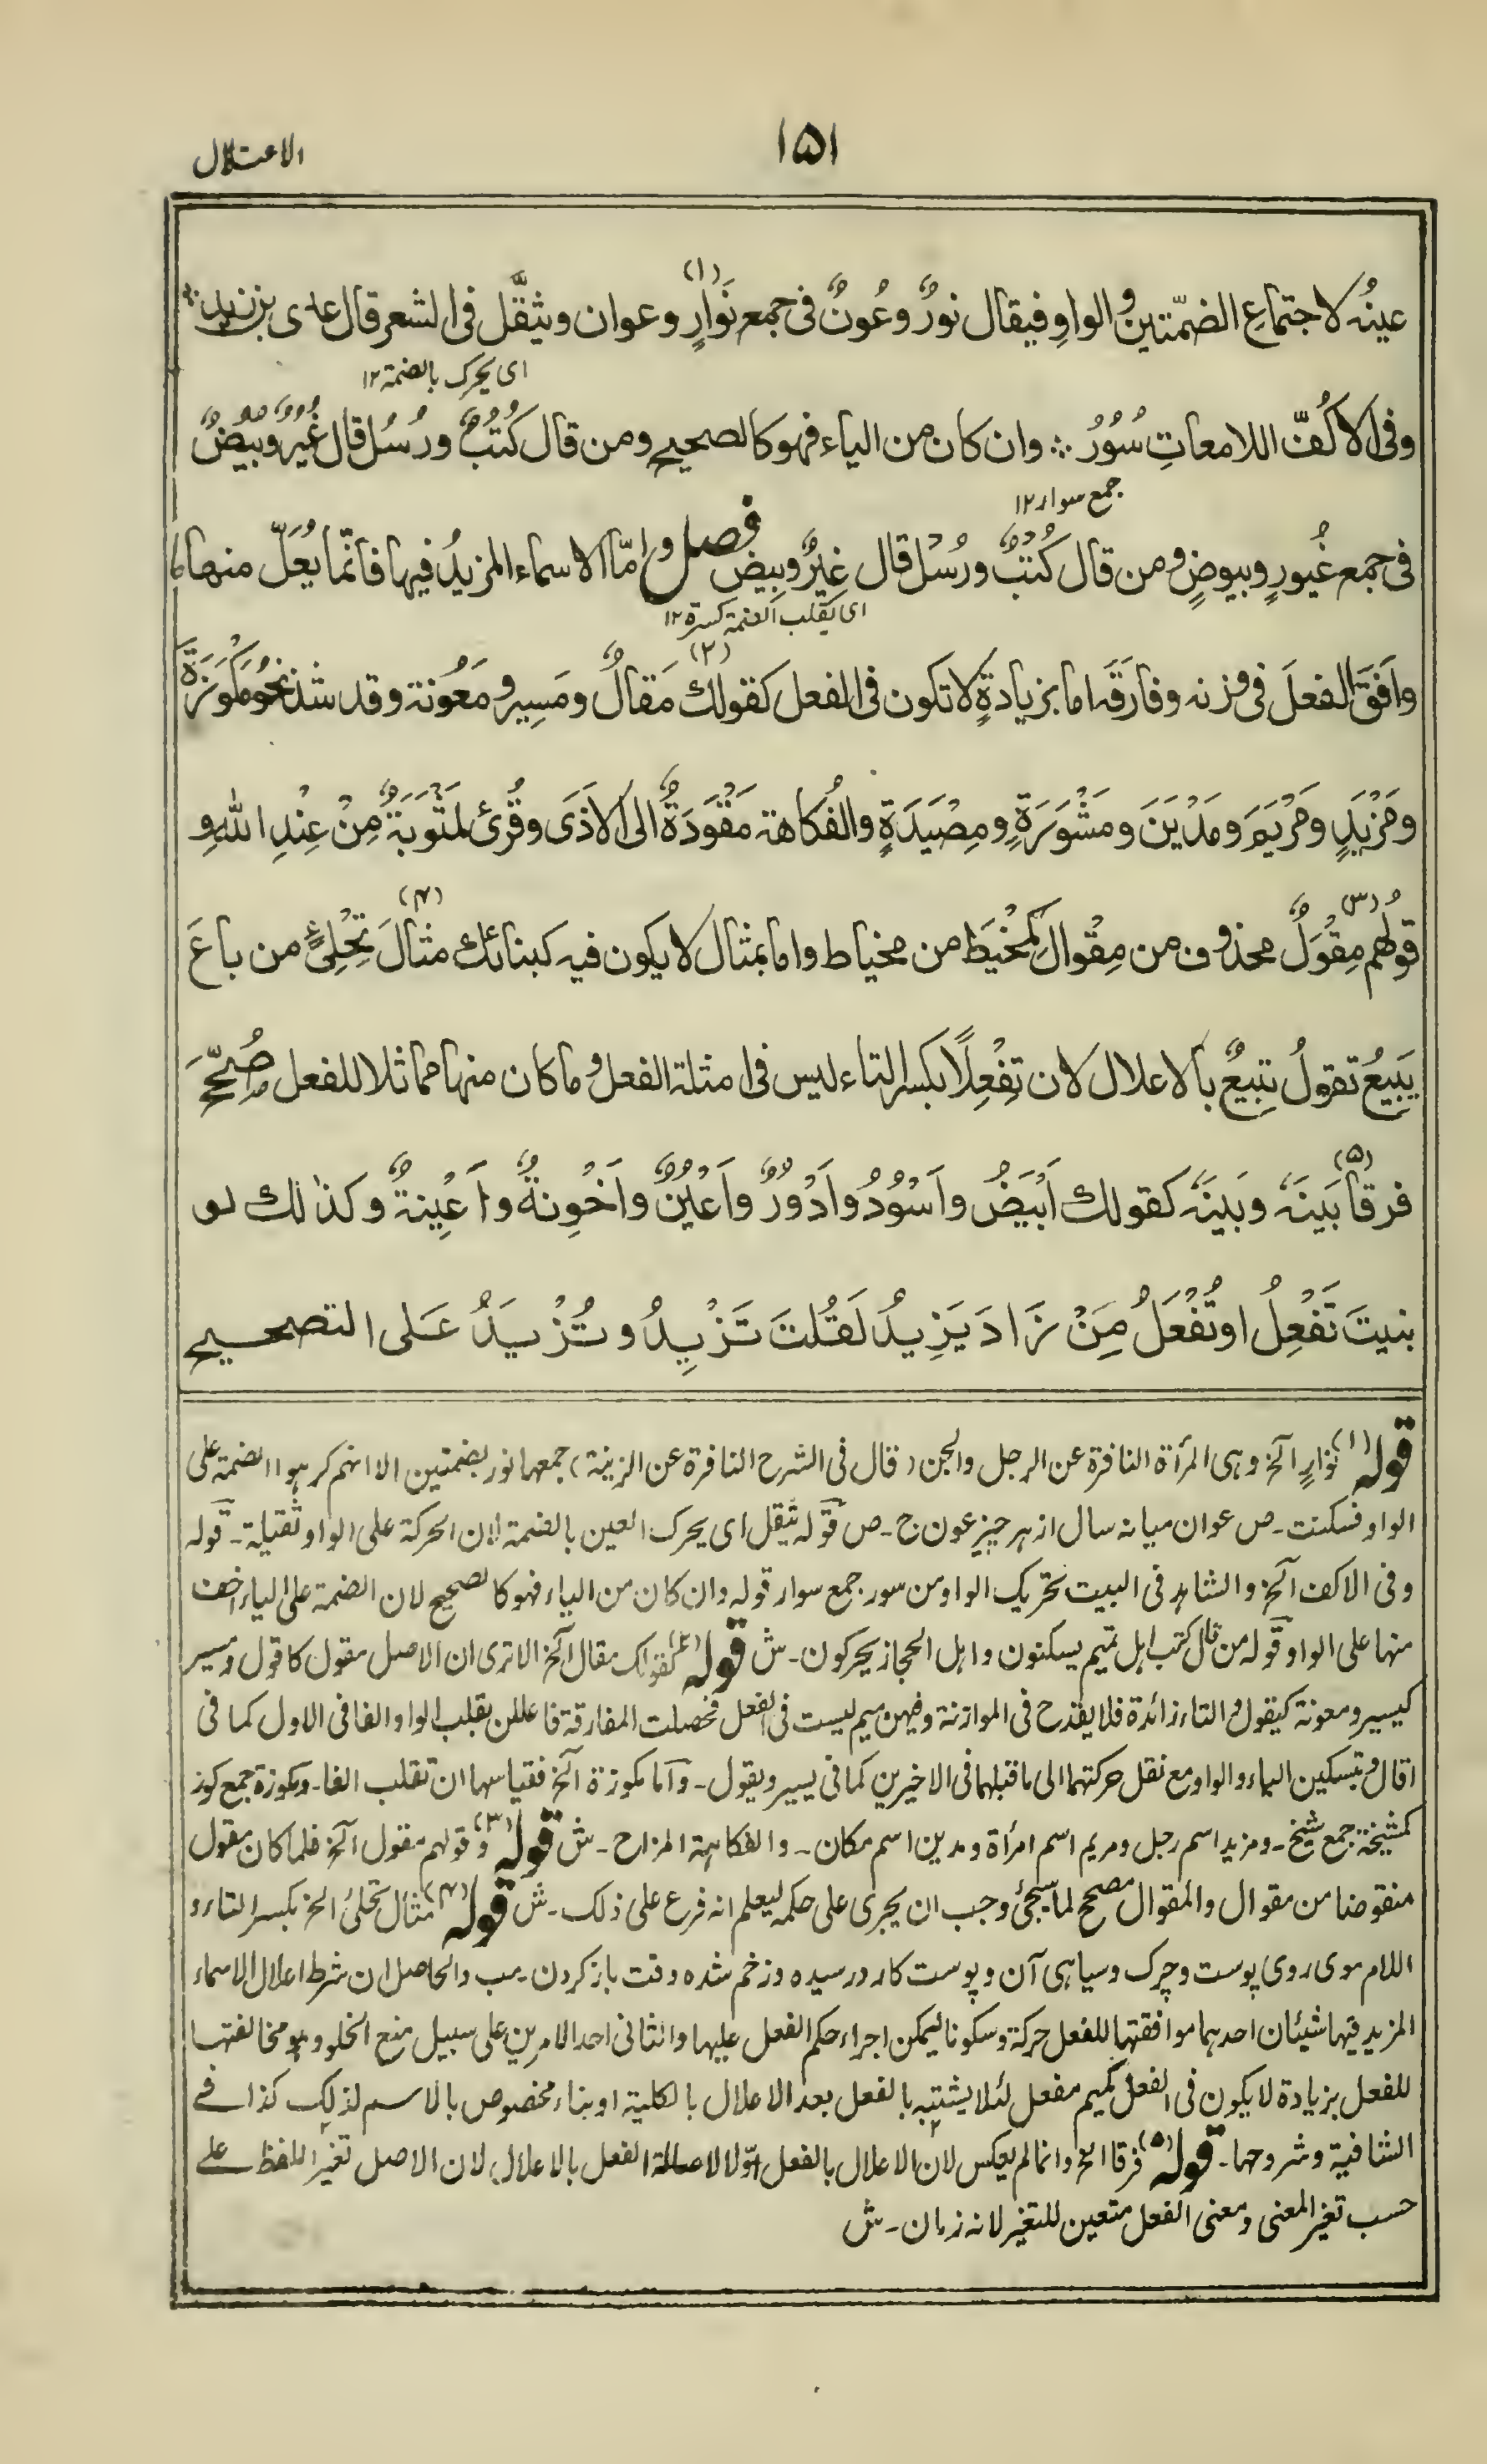 ١٥١
الاعتلال
عينُه لاجتماعِ الضمّتينِ والواوِ فيقال نورٌ وعُونٌ فى جمع نَوارٍ (١) وعوان ويثقَّل فى الشعر قال عدى بن زيد
اى يحرك بالضمة ١٢
وفى الاكُفّ اللامعاتِ سُوُرُ ∴ وان كان من الياء فهو كالصحيح ومن قال كُتُبٌ ورُسُل قال غُيُرٌ وبُيُضٌ
جمع سوار ١٢
فى جمع غُيورٍ وبيوضٍ ومن قال كُتْبٌ ورُسْل قال غِيْرٌ وبِيض فصل وامّا الاسماء المزيدُ فيها فانّما يُعَلّ منها ما
اى يقلب الضمة كسرة ١٢
وافَقَ الفعلَ فى وزنه وفارَقَه اما بزيادةٍ لا تكون فى الفعل كقولك (٢) مَقالٌ ومَسِير ومَعُونة وقد شذ نحوُ مَكْوَزَةٍ
ومَزْيَدٍ ومَرْيَمَ ومَدْيَنَ ومَشْوَرَةٍ ومِصْيَدَةٍ والفُكاهة مَقْوَدَةٌ الى الاذَى وقُرِئ لَمَثْوَبَةٌ مِنْ عِنْدِ اللهِ و
قولُهم (٣) مِقْوَلٌ محذوف من مِقْوالٍ كمِخْيَط من مخياط واما بمثال لا يكون فيه كبنائك مثالَ (٤) تِحْلِئٍ من باعَ
يَبِيعُ تقولُ تِبِيعٌ بالاعلال لان تِفْعِلًا بكسر التاء ليس فى امثلة الفعل وما كان منها مماثلا للفعل صُحِّحَ
فرقا (٥) بَينَه وبَينَه كقولك اَبْيَضُ واَسْوَدُ واَدْوُرٌ واَعْيُنٌ واَخْوِنةٌ واَعْيِنةٌ وكذلك لو
بنيتَ تَفْعِلُ او تُفْعَلُ مِنْ زَادَ يَزِيدُ لَقُلتَ تَزْيِدُ و تُزْيَدُ عَلى التصحيح
قوله (١) نوارٍ الخ وهى المرأة النافرة عن الرجل والجن (قال فى الشرح النافرة عن الزينة) جمعها نور بضمتين الا انهم كرهوا الضمة على
الواو فسكنت ۔ ص عوان ميانه سال از هر چيز عون ج ۔ ص قوله يثقل اى يحرك العين بالضمة لان الحركة على الواو ثقيلة ۔ قوله
وفى الاكف الخ والشاهد فى البيت تحريك الواو من سور جمع سوار قوله وان كان من الياء فهو كالصحيح لان الضمة على الياء اخف
منها على الواو قوله من قال كتب اهل تميم يسكنون واهل الحجاز يحركون ۔ ش قوله (٢) كقولك مقال الخ الا ترى ان الاصل مقول كاقول ومسير
كيسير ومعونة كيقول والتاء زائدة فلا يقدح فى الموازنة وفيهن ميم ليست فى الفعل فحصلت المفارقة فاعللن بقلب الواو الفا فى الاول كما فى
اقال وتسكين الياء والواو مع نقل حركتهما الى ما قبلهما فى الاخيرين كما فى يسير ويقول ۔ واما مكوزة الخ فقياسها ان تقلب الفا ۔ ومكوزة جمع كوز
كمشيخة جمع شيخ ۔ ومزيد اسم رجل ومريم اسم امرأة ومدين اسم مكان ۔ والفكاهة المزاح ۔ ش قوله (٣) وقولهم مقول الخ فلما كان مقول
منقوضا من مقوال والمقوال مصحح لما سيجئ وجب ان يجرى على حكمه ليعلم انه فرع على ذلك ۔ ش قوله (٤) مثال تحلئ الخ بكسر التاء و
اللام موى روى پوست وچرک وسياهى آن وپوست كارد رسيده وزخم شده وقت باز كردن ۔ مب والحاصل ان شرط اعلال الاسماء
المزيد فيها شيئان احدهما موافقتها للفعل حركة وسكونا ليمكن اجراء حكم الفعل عليها والثانى احد الامرين على سبيل منع الخلو وهو مخالفتها
للفعل بزيادة لا يكون فى الفعل كميم مفعل لئلا يشتبه بالفعل بعد الاعلال بالكلية او بناء مخصوص بالاسم لذلك كذا فى
الشافية وشروحها ۔ قوله (٥) فرقا الخ وانما لم يعكس لان الاعلال بالفعل اولا لاصالة الفعل بالاعلال لان الاصل تغير اللفظ على
حسب تغير المعنى ومعنى الفعل متعين للتغير لانه زمان ۔ ش